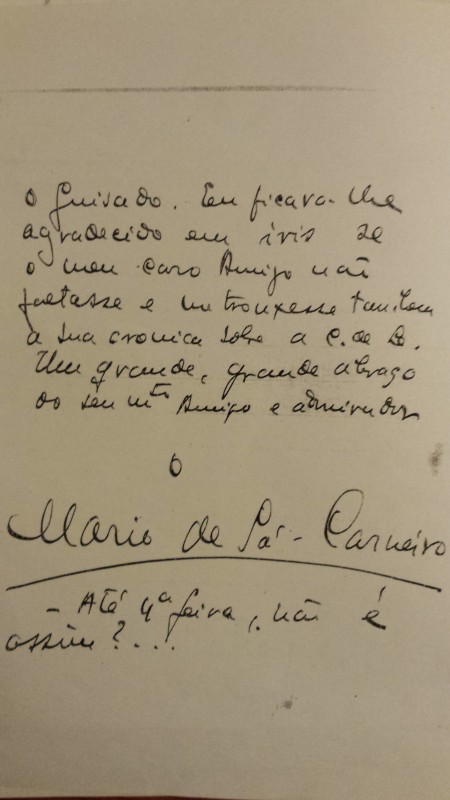 o Guisado. Eu ficava-lhe
agradecido em iris se
o meu caro Amigo não
faltasse e me trouxesse tambem
a sua cronica sobre a C. de L.
Um grande, grande abraço
do seu mtº Amigo e admirador
o
Mario de Sá-Carneiro
- Até 4ª feira, não é
assim?...